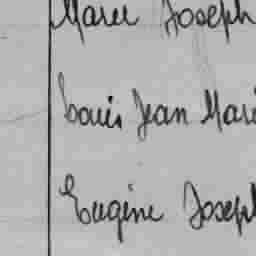 Marie Joseph
Louis Jean Mari
Eugène Joseph